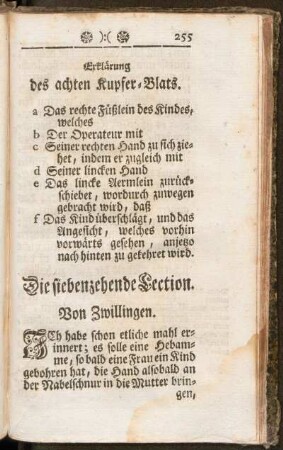 ):( 255
Erklärung
des achten Kupfer-Blats.
a Das rechte Füßlein des Kindes,
welches
b Der Operateur mit
c Seiner rechten Hand zu sich zie-
het, indem er zugleich mit
d Seiner lincken Hand
e Das lincke Aermlein zurück-
schiebet, wordurch zuwegen
gebracht wird, daß
f Das Kind überschlägt, und das
Angesicht, welches vorhin
vorwärts gesehen, anjetzo
nach hinten zu gekehret wird.
Die siebenzehende Lection.
Von Zwillingen.
ICh habe schon etliche mahl er-
innert; es solle eine Hebam-
me, so bald eine Frau ein Kind
gebohren hat, die Hand alsobald an
der Nabelschnur in die Mutter brin-
gen,